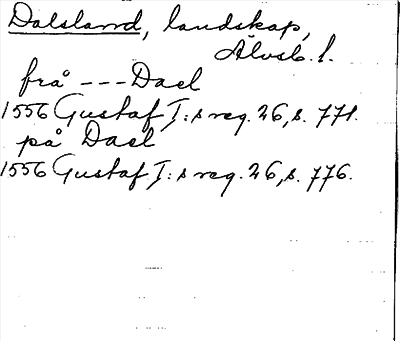 Dalsland, landskap,
Älvsb. l.
frå --- Dael
1556 Gustaf I:s reg. 26, s. 771.
på Dael
1556 Gustaf I:s reg. 26, s. 776.